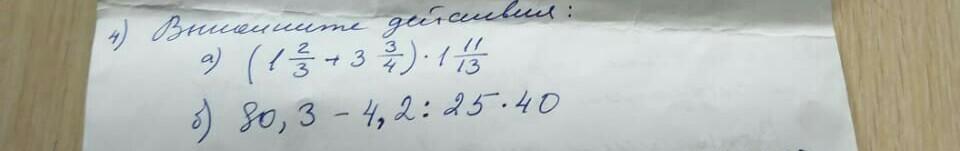 4) Выполните действия:
а) (1 2/3 + 3 3/4) · 1 11/13
б) 80,3 - 4,2 : 25 · 40